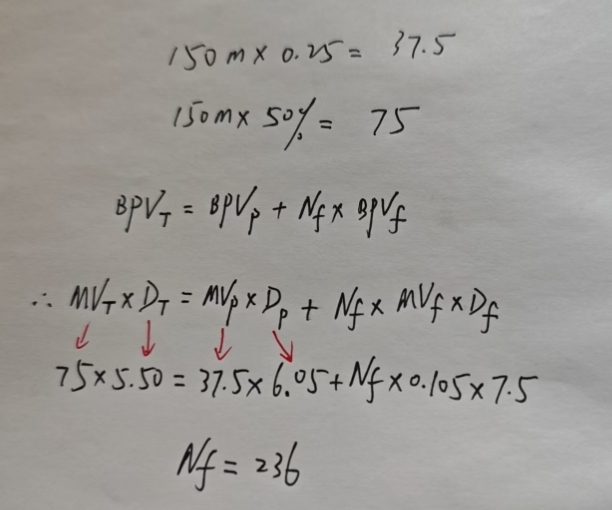 150m × 0.25 = 37.5
150m × 50% = 75
BPV_T = BPV_p + N_f × BPV_f
∴ MV_T × D_T = MV_p × D_p + N_f × MV_f × D_f
75 × 5.50 = 37.5 × 6.05 + N_f × 0.105 × 7.5
N_f = 236